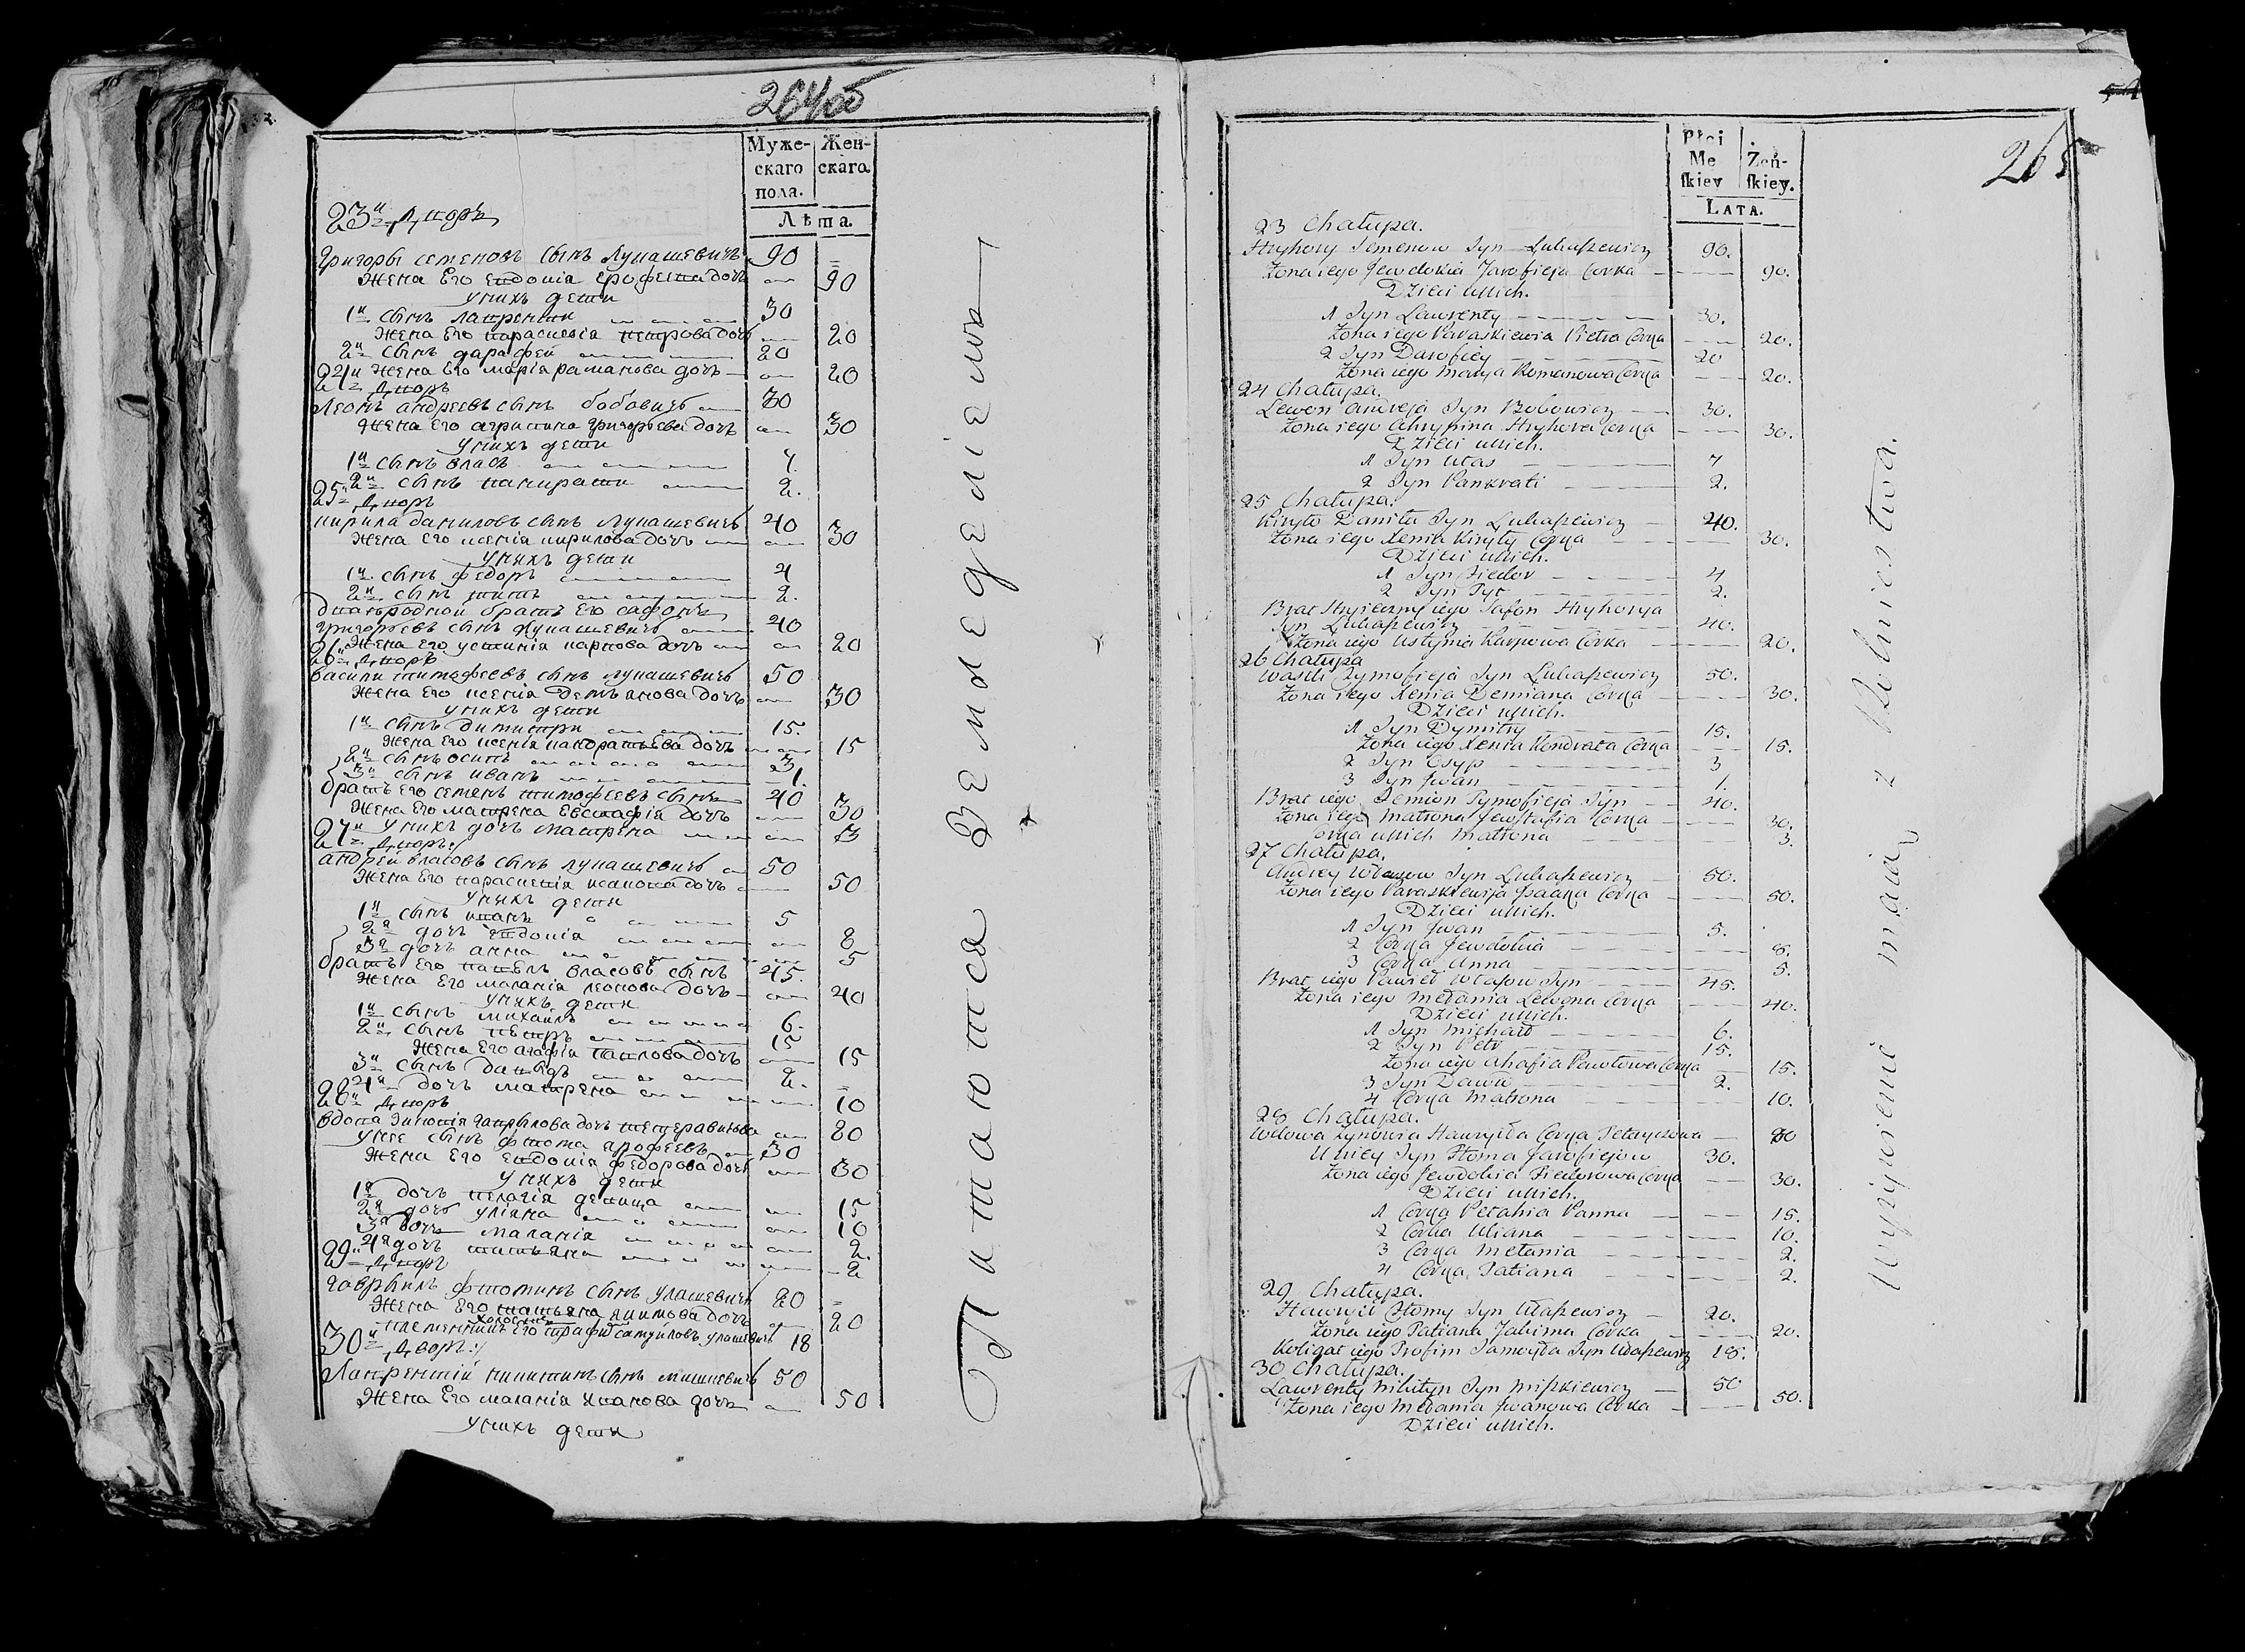 264об
Муже- Жен-
скаго скаго.
пола.
Лѣта.
23й Дворъ
Григоры семеновъ сынъ Лукашевичъ 90
Жена Его евдокия ерофеева дочь 90
У нихъ дети
1й сынъ лаврентий 30
Жена Его параскевия петрова дочь 20
2й сынъ дарафей 20
Жена Его мария раманова дочь 20
24й Дворъ
Леонъ андреевъ сынъ бобовичъ 30
Жена Его агрипина григорьева дочь 30
У нихъ дети
1й сынъ власъ 7
2й сынъ панкрати 2.
25й Дворъ
кирила даниловъ сынъ Лукашевичъ 40
Жена Его ксения кирилова дочь 30
У нихъ дети
1й сынъ федоръ 4
2й сынъ титъ 2.
двоюродной братъ Его сафонъ
григорьевъ сынъ Лукашевичъ 40
Жена Его устиния карпова дочь 20
26й Дворъ
васили тимофеевъ сынъ лукашевичъ 50
Жена Его ксения демьянова дочь 30
У нихъ дети
1й сынъ димитри 15.
Жена Его ксения кондратьева дочь 15
2й сынъ осипъ 3
3й сынъ иванъ 1.
братъ Его семенъ тимофеевъ сынъ 40
Жена Его матрена евстафия дочь 30
У нихъ дочь матрена 3
27й Дворъ
андрей власовъ сынъ лукашевичъ 50
Жена Его параскевия исакова дочь 50
У нихъ дети
1й сынъ иванъ 5
2я дочь евдокия 8
3я дочь анна 5
братъ Его павелъ власовъ сынъ 45.
Жена Его малания леонова дочь 40
У нихъ дети
1й сынъ михайла 6.
2й сынъ петръ 15
Жена Его агафия павлова дочь 15
3й сынъ давыдъ 2.
4я дочь матрена 10
28й Дворъ
вдова зиновия гаврилова дочь петеравичова 80
У нее сынъ фтома ярофеевъ 30
Жена Его евдокия федорова дочь 30
У нихъ дети
1я дочь пелагия девица 15
2я дочь уляна 10
3я дочь малания 2.
4я дочь татьяна 2
29й Дворъ
гаврыилъ фтоминъ сынъ улашевичъ 20
Жена Его татьяна якимова дочь 20
холостъ
племенникъ Его трафи самуйловъ улашевичъ 18
30й Дворъ
Лаврентий никитинъ сынъ мишкевичъ 50
Жена Его малания иванова дочь 50
У нихъ дети
Питаются Земледелиемъ
265
Płci
Me Żeń-
ſkiey ſkiey.
LATA.
23 Chałupa.
Hryhory Semenow Syn Łukaszewicz 90.
Żona iego Jewdokia Jarofieja Corka 90.
Dzieci u nich.
1 Syn Lawrenty 30.
Żona iego Paraskiewia Pietra Corka 20.
2 Syn Darofiey 20
Żona iego Marya Romanowa Corka 20.
24 Chałupa.
Lewon Andreja Syn Bobowicz 30.
Żona iego Ahrypina Hryhora Corka 30.
Dzieci u nich.
1 Syn Ułas 7
2 Syn Pankrati 2.
25 Chałupa.
Kiryło Daniła Syn Łukaszewicz 40.
Żona iego Xenia Kiryły Corka 30.
Dzieci u nich.
1 Syn Fiedor 4
2 Syn Tyt 2.
Brat Stryieczny iego Safon Hryhorya
Syn Łukaszewicz 40.
Żona iego Ustynia Karpowa Corka 20.
26 Chałupa
Wasili Tymofieja Syn Łukaszewicz 50.
Żona iego Xenia Demiana Corka 30.
Dzieci u nich.
1 Syn Dymitry 15.
Żona iego Xenia Kondrata Corka 15.
2 Syn Osyp 3
3 Syn Jwan 1.
Brat iego Semion Tymofieja Syn 40.
Żona iego Matrona Jewstafia Corka 30.
Corka u nich Matrona 3.
27 Chałupa.
Andrey Własow Syn Łukaszewicz 50.
Żona iego Paraskiewija Jsaaka Corka 50.
Dzieci u nich.
1 Syn Jwan 5.
2 Corka Jewdokia 8.
3 Corka Anna 5.
Brat iego Pawieł Własow Syn 45.
Żona iego Mełania Lewona Corka 40.
Dzieci u nich.
1 Syn Michaił 6.
2 Syn Petr 15.
Żona iego Ahafia Pawłowa Corka 15.
3 Syn Dawid 2.
4 Corka Matrona 10.
28 Chałupa.
Wdowa Zynowia Hawryiła Corka 80
U niey Syn Ftoma Jarofiejow 30.
Żona iego Jewdokia Fiedorowa Corka 30.
Dzieci u nich.
1 Corka Pełahia Panna 15.
2 Corka Uliana 10.
3 Corka Mełania 2.
4 Corka Tatiana 2.
29 Chałupa.
Hawryił Ftomy Syn Ułaszewicz 20.
Żona iego Tatiana Jakima Corka 20.
iego Trofim Samoyła Syn Ułaszewicz 18.
30 Chałupa.
Lawrenty Mikityn Syn Miszkiewicz 50
Żona iego Mełania Jwanowa Corka 50.
Dzieci u nich.
Wyżywienie maią z Rolnictwa.